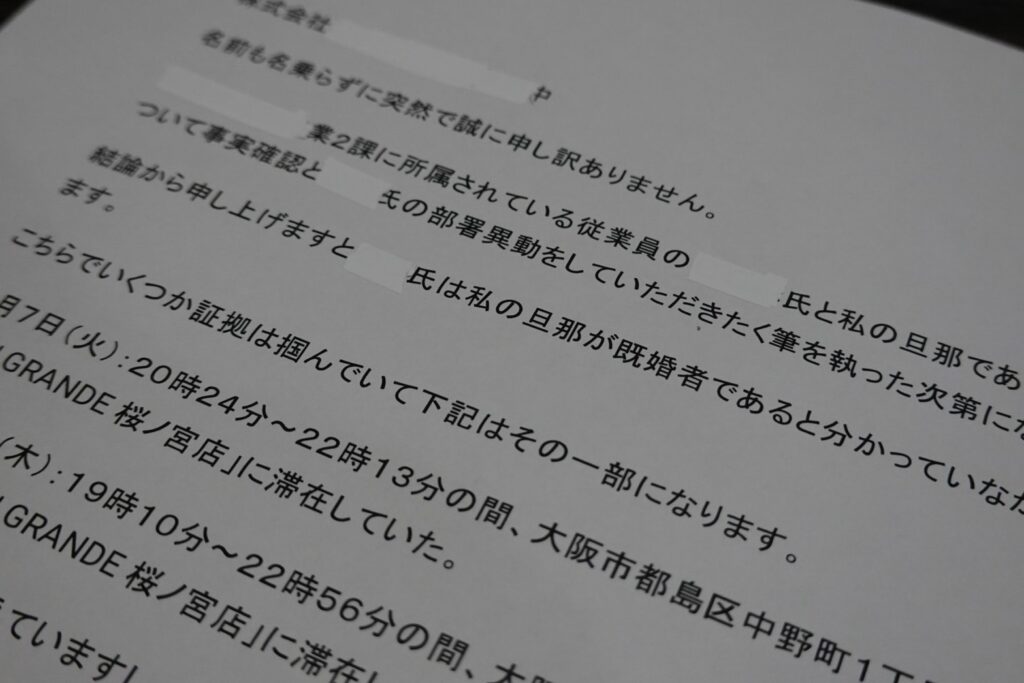 株式会社
名前も名乗らずに突然で誠に申し訳ありません。
業2課に所属されている従業員の 氏と私の旦那であ
ついて事実確認と 氏の部署異動をしていただきたく筆を執った次第にな
ます。
結論から申し上げますと 氏は私の旦那が既婚者であると分かっていなが
こちらでいくつか証拠は掴んでいて下記はその一部になります。
月7日(火):20時24分~22時13分の間、大阪市都島区中野町1丁
GRANDE 桜ノ宮店」に滞在していた。
(木):19時10分~22時56分の間、大
GRANDE 桜ノ宮店」に滞在し
ていますし